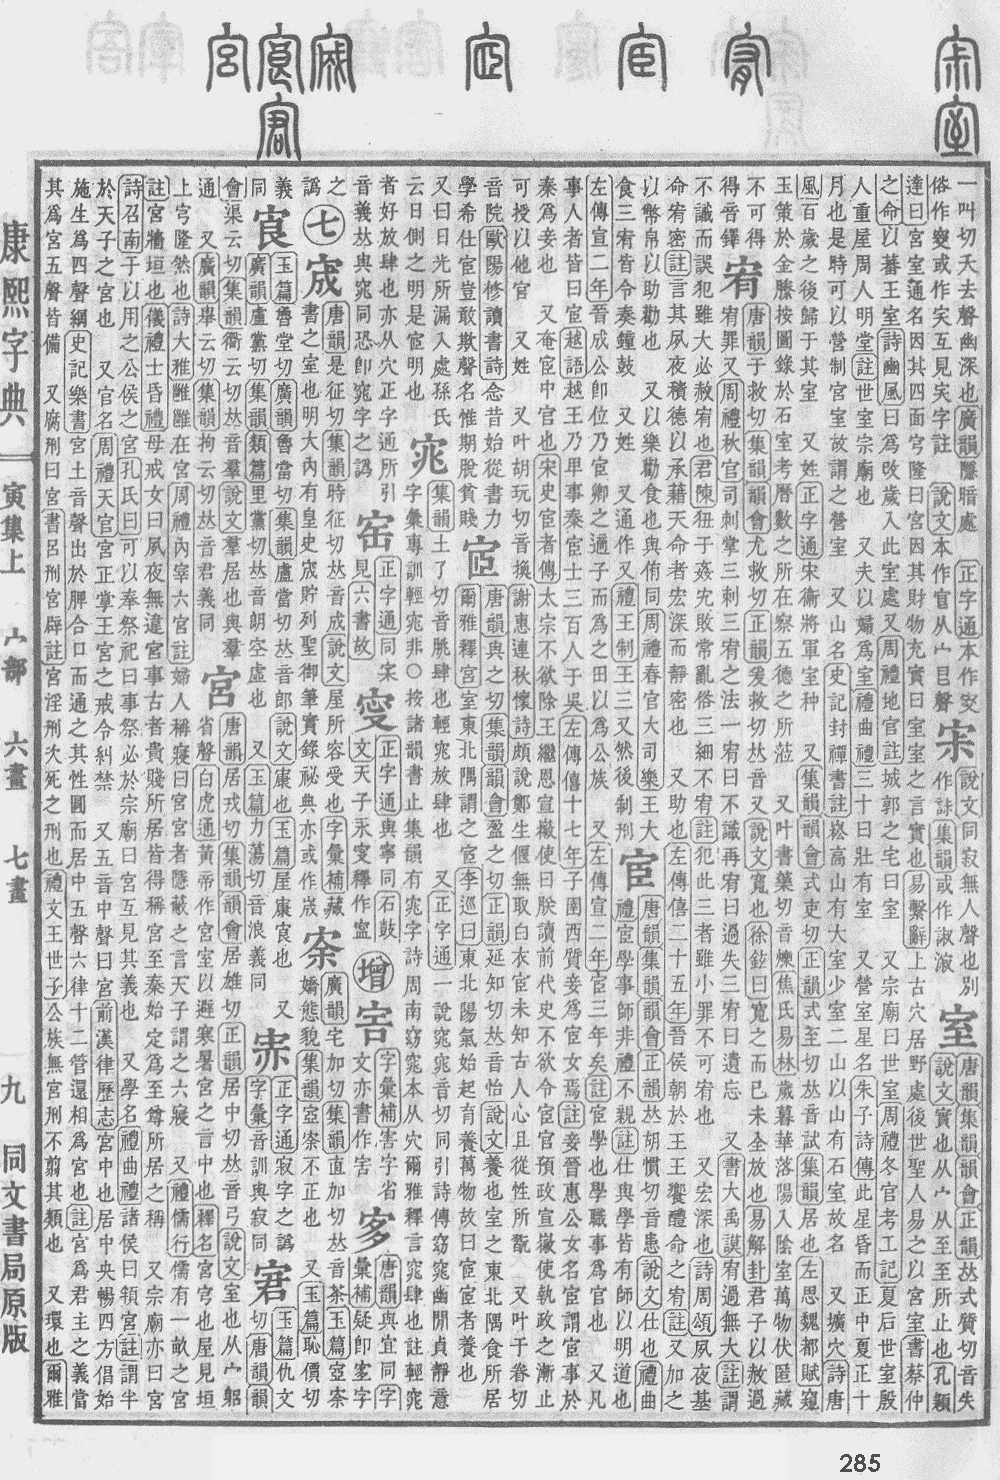 一叫切夭去聲幽深也廣韻隱暗處 正字通本作
宋 說文同寂無人聲也別作諔集韻或作淑
室 唐韻集韻韻會正韻𠀤式質切音失說文實也从宀从至至所止也孔穎
達曰宮室通名因其四面穹隆曰宮因其財物充實曰室室之言實也易繫辭上古穴居野處後世聖人易之以宮室書蔡仲
之命以蕃王室詩豳風曰為改歲入此室處又周禮地官註城郭之宅曰室 又宗廟曰世室周禮冬官考工記夏后世室殷
人重屋周人明堂註世室宗廟也 又夫以婦為室禮曲禮三十曰壯有室 又營室星名朱子詩傳此星昏而正中夏正十
月也是時可以營制宮室故謂之營室 又山名史記封禪書註崧高山有大室少室二山以山有石室故名 又壙穴詩唐
風百歲之後歸于其室 又姓正字通宋衞將軍室种 又集韻韻會式吏切正韻式至切𠀤音試集韻居也左思魏都賦窺
玉策於金縢按圖錄於石室考曆數之所在察五德之所蒞 又叶書藥切音爍焦氏易林歲暮華落陽入陰室萬物伏匿藏
不可得
宥 唐韻于救切集韻韻會尤救切正韻爰救切𠀤音又說文寬也徐鉉曰寬之而已未全放也易解卦君子以赦過
宥罪又周禮秋官司刺掌三刺三宥之法一宥曰不識再宥曰過失三宥曰遺忘 又書大禹謨宥過無大註謂
不識而誤犯雖大必赦宥也君陳狃于姦宄敗常亂俗三細不宥註犯此三者雖小罪不可宥也 又宏深也詩周頌夙夜基
命宥密註言其夙夜積德以承藉天命者宏深而靜密也 又助也左傳僖二十五年晉侯朝於王王饗醴命之宥註又加之
以幣帛以助勸也 又以樂勸食也與侑同周禮春官大司樂王大
食三宥皆令奏鐘鼓 又姓 又通作又禮王制王三又然後制刑
宦 唐韻集韻韻會正韻𠀤胡慣切音患說文仕也禮曲
禮宦學事師非禮不親註仕與學皆有師以明道也
左傳宣二年晉成公卽位乃宦卿之適子而為之田以為公族 又左傳宣二年宦三年矣註宦學也學職事為官也 又凡
事人者皆曰宦越語越王乃卑事秦宦士三百人于吳左傳僖十七年子圉西質妾為宦女焉註妾晉惠公女名宦謂宦事於
秦為妾也 又奄宦中官也宋史宦者傳太宗不欲除王繼恩宣徽使曰朕讀前代史不欲令宦官預政宣徽使執政之漸止
可授以他官 又姓 又叶胡玩切音換謝惠連秋懷詩頗說鄭生偃無取白衣宦未知古人心且從性所翫 又叶于眷切
音院歐陽修讀書詩念昔始從書力
學希仕宦豈敢欺聲名惟期脫貧賤
宧 唐韻與之切集韻韻會盈之切正韻延知切𠀤音怡說文養也室之東北隅食所居
爾雅釋宮室東北隅謂之宧李巡曰東北陽氣始起育養萬物故曰宧宧者養也
又曰日光所漏入處孫氏
云日側之明是宦明也
窕 集韻土了切音朓肆也輕窕放肆也 又正字通一說窕窕音切同引詩傳窈窕幽閒貞靜意
字彙專訓輕窕非○按諸韻書止集韻有窕字詩周南窈窕本从穴爾雅釋言窕肆也註輕窕
者好放肆也亦从穴正字通所引
音義𠀤與窕同恐卽窕字之譌
宻 正字通同
見六書故
𡨆 正字通與寧同石鼓
文天子永𡨆作𡨴
增
𡧱 字彙補害字省
文亦書作𡧱
㝖 唐韻與宜同字
彙補疑卽㝖字
之
譌
七
宬 唐韻是征切集韻時征切𠀤音成說文屋所容受也字彙補藏
書之室也明大內有皇史宬貯列聖御筆實錄祕典亦或作宬
㝞 廣韻宅加切集韻直加切𠀤音茶玉篇㝞
嬌態貌集韻㝞不正也 又玉篇恥價切
義
同
㝗 玉篇魯堂切廣韻魯當切集韻盧當切𠀤音郎說文康也玉篇屋康㝗也 又
廣韻盧黨切集韻類篇里黨切𠀤音朗空虛也 又玉篇力蕩切音浪義同
𡧘 正字通寂字之譌
字彙音訓與寂同
宭 玉篇仇文
切唐韻
會渠云切集韻衢云切𠀤音羣說文羣居也與羣
通 又廣韻舉云切集韻拘云切𠀤音君義同
宮 唐韻居戎切集韻韻會居雄切正韻居中切𠀤音弓說文室也从宀躳
省聲白虎通黃帝作宮室以避寒暑宮之言中也釋名宮穹也屋見垣
上穹隆然也詩大雅雝雝在宮周禮內宰六宮註婦人稱寢曰宮宮者隱蔽之言天子謂之六寢 又禮儒行儒有一畝之宮
註宮牆垣也儀禮士昏禮母戒女曰夙夜無違宮事古者貴賤所居皆得稱宮至秦始定為至尊所居之稱 又宗廟亦曰宮
詩召南于以用之公侯之宮孔氏曰可以奉祭祀曰事祭必於宗廟曰宮互見其義也 又學名禮曲禮諸侯曰頖宮註謂半
於天子之宮也 又官名周禮天官宮正掌王宮之戒令糾禁 又五音中聲曰宮前漢律歷志宮中也居中央暢四方倡始
施生為四聲綱史記樂書宮土音聲出於脾合口而通之其性圓而居中五聲六律十二管還相為宮也註宮為君主之義當
其為宮五聲皆備 又腐刑曰宮書呂刑宮辟註宮淫刑次死之刑也禮文王世子公族無宮刑不翦其類也 又環也爾雅
康熙字典
寅集上 宀部 六畫 七畫
九 同文書局原版
285